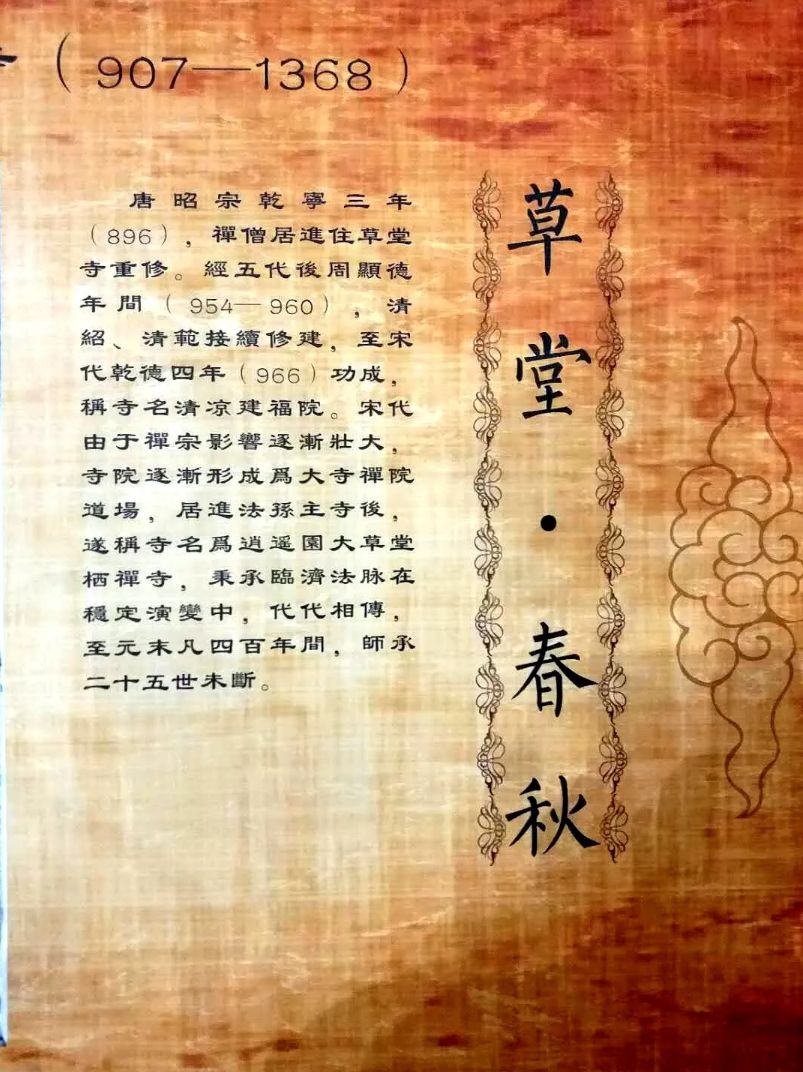 (907—1368)
唐昭宗乾寧三年
(896),禪僧居進住草堂
寺重修。經五代後周顯德
年間(954—960),清
紹、清範接續修建,至宋
代乾德四年(966)功成,
稱寺名清凉建福院。宋代
由于禪宗影響逐漸壯大,
寺院逐漸形成爲大寺禪院
道場,居進法孫主寺後,
遂稱寺名爲逍遥園大草堂
栖禪寺,秉承臨濟法脉在
穩定演變中,代代相傳,
至元末凡四百年間,師承
二十五世未斷。
草堂·春秋